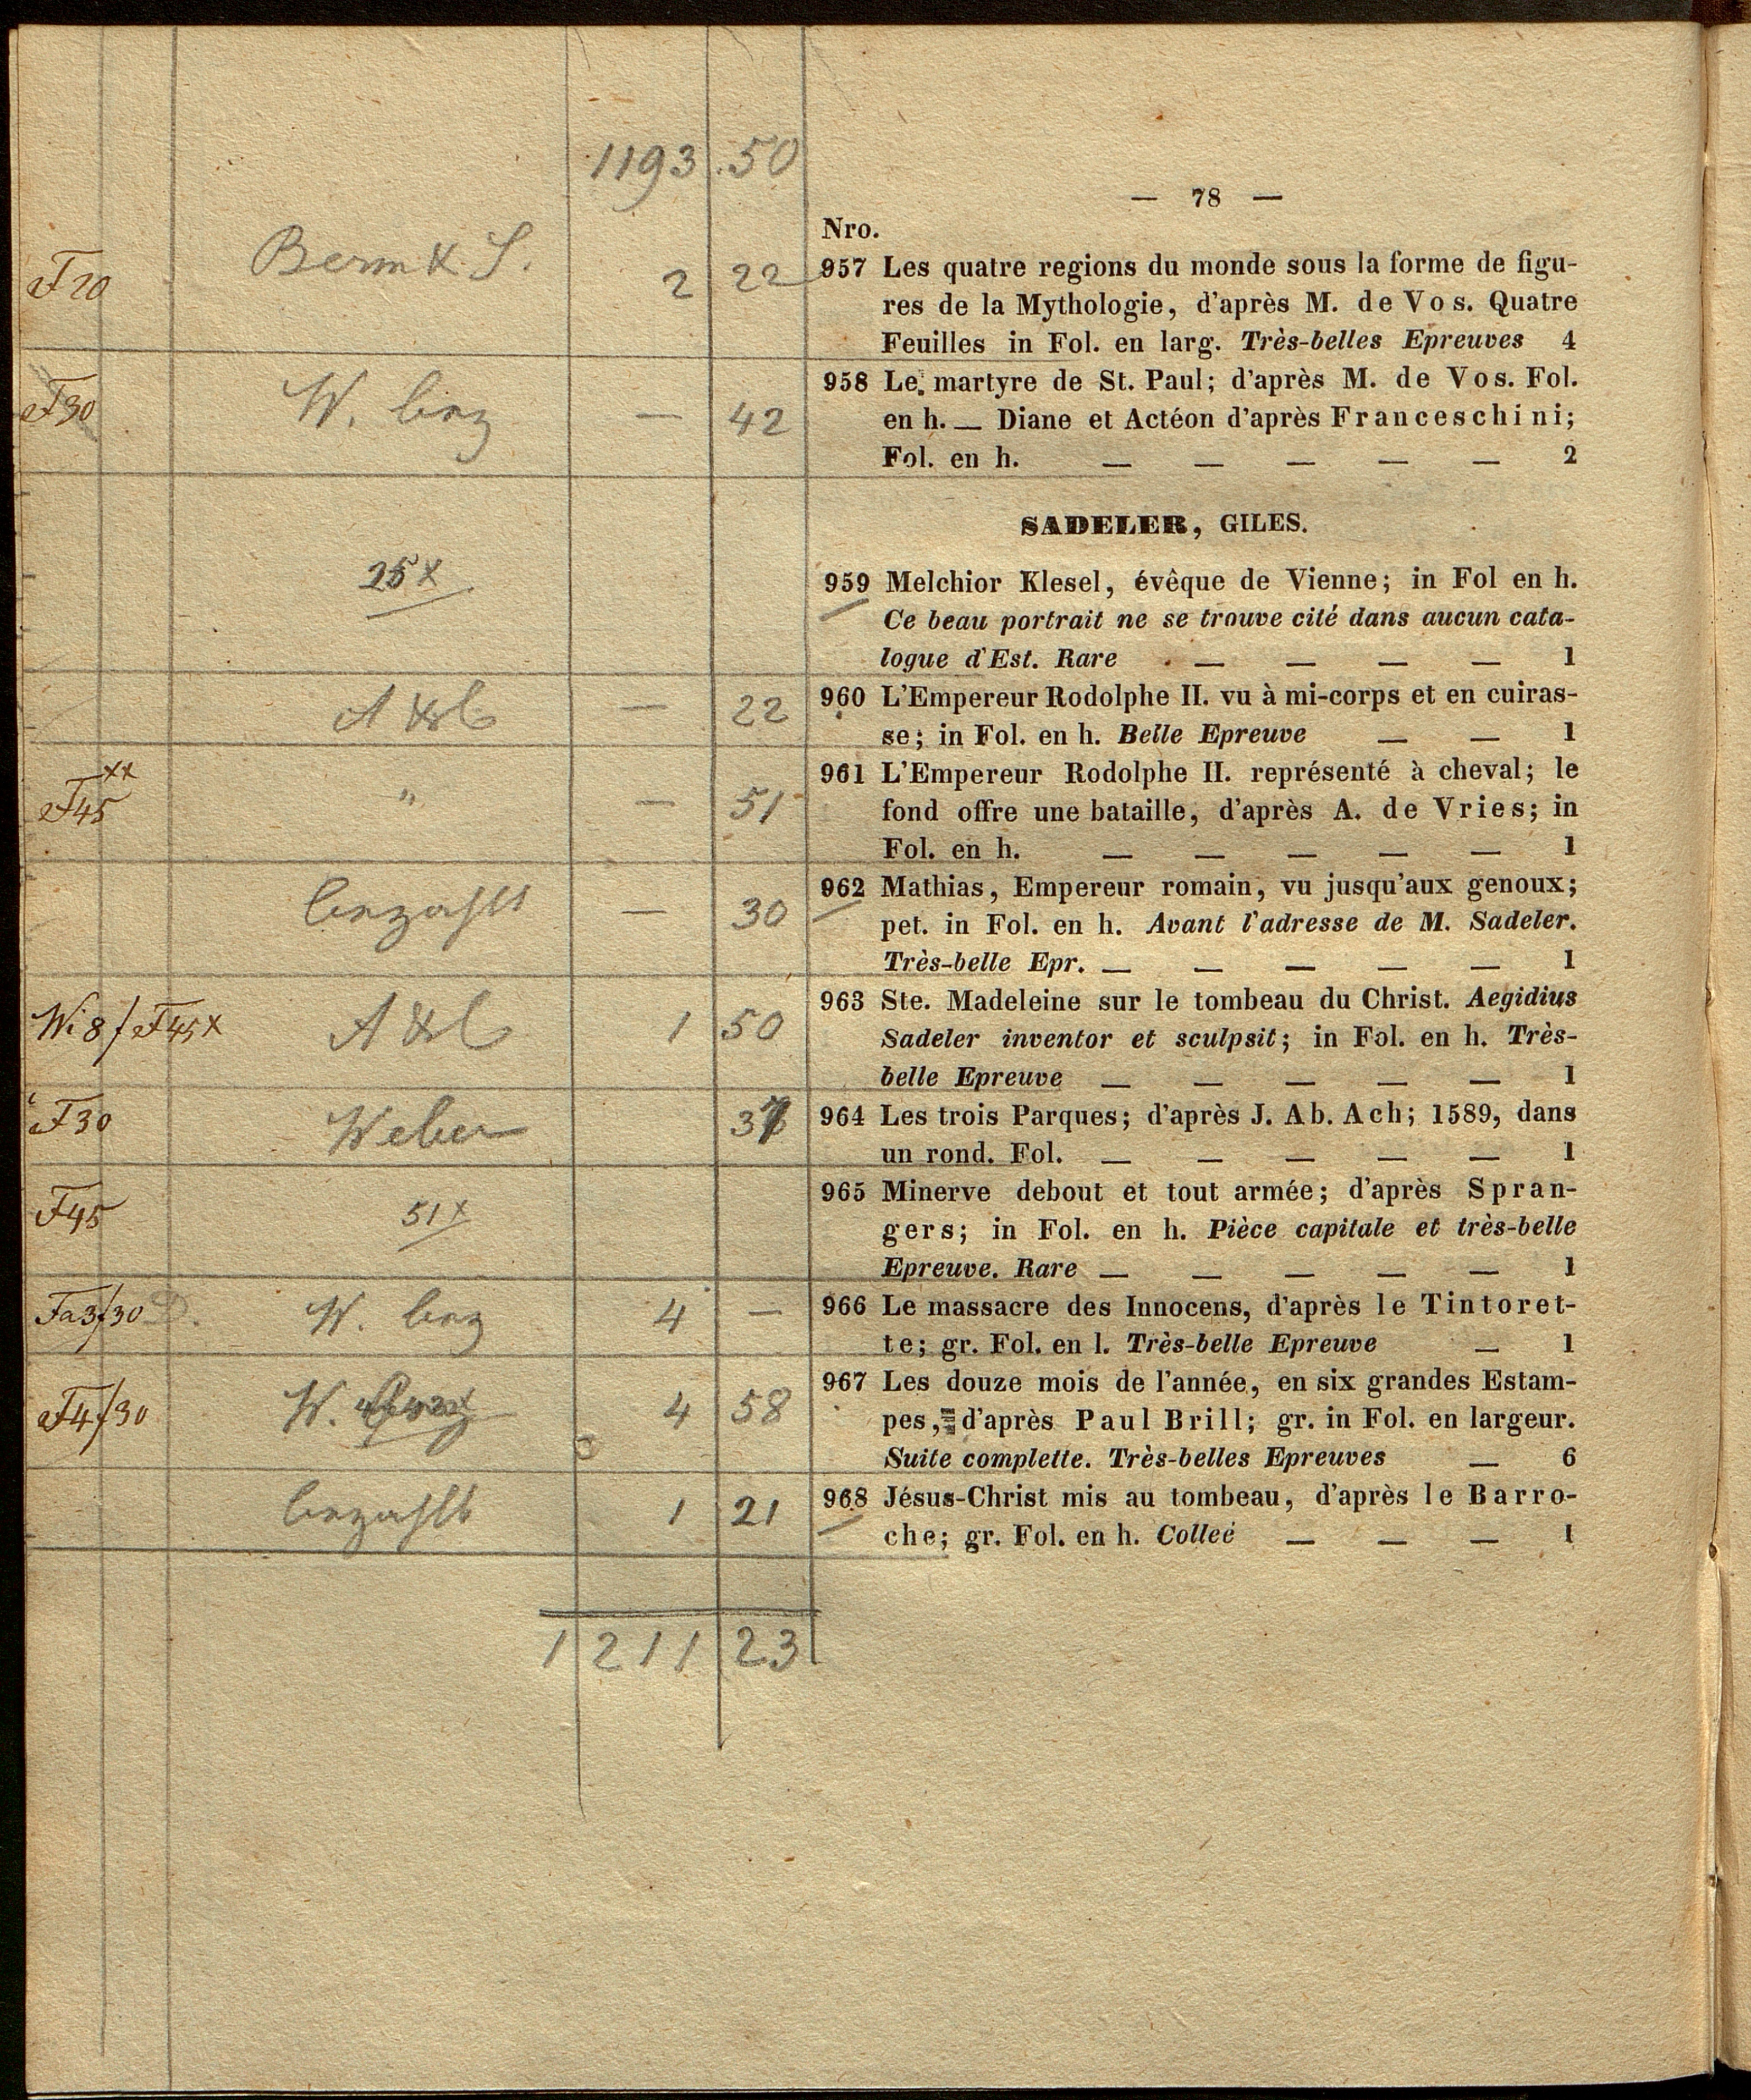 1193.50
— 78 —
Nro.
F20 2 22 957 Les quatre regions du monde sous la forme de figu-
res de la Mythologie, d'après M. de Vos. Quatre
Feuilles in Fol. en larg. Très-belles Epreuves 4
F30 W. — 42 958 Le martyre de St. Paul; d'après M. de Vos. Fol.
en h. — Diane et Actéon d'après Franceschini;
Fol. en h. — — — — — 2
SADELER, GILES.
25x 959 Melchior Klesel, évêque de Vienne; in Fol en h.
Ce beau portrait ne se trouve cité dans aucun cata-
logue d'Est. Rare — — — — 1
— 22 960 L'Empereur Rodolphe II. vu à mi-corps et en cuiras-
se; in Fol. en h. Belle Epreuve — — 1
F45 xx " — 51 961 L'Empereur Rodolphe II. représenté à cheval; le
fond offre une bataille, d'après A. de Vries; in
Fol. en h. — — — — — 1
— 30 962 Mathias, Empereur romain, vu jusqu'aux genoux;
pet. in Fol. en h. Avant l'adresse de M. Sadeler.
Très-belle Epr. — — — — — 1
1 50 963 Ste. Madeleine sur le tombeau du Christ. Aegidius
Sadeler inventor et sculpsit; in Fol. en h. Très-
belle Epreuve — — — — — 1
F30 Weber 964 Les trois Parques; d'après J. Ab. Ach; 1589, dans
un rond. Fol. — — — — — 1
F45 51x 965 Minerve debout et tout armée; d'après Spran-
gers; in Fol. en h. Pièce capitale et très-belle
Epreuve. Rare — — — — — 1
W. 4 — 966 Le massacre des Innocens, d'après le Tintoret-
te; gr. Fol. en l. Très-belle Epreuve — 1
W. 4 58 967 Les douze mois de l'année, en six grandes Estam-
pes, d'après Paul Brill; gr. in Fol. en largeur.
Suite complette. Très-belles Epreuves — 6
1 21 968 Jésus-Christ mis au tombeau, d'après le Barro-
che; gr. Fol. en h. Colleé — — — 1
1211 23